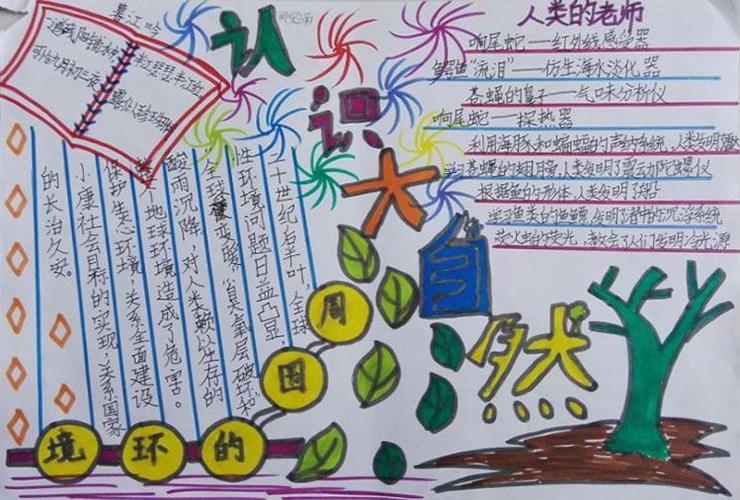 暮江吟
认识大自然
人类的老师
响尾蛇——红外线感受器
鳄鱼“流泪”——仿生海水淡化器
苍蝇的鼻子——气味分析仪
响尾蛇——探热器
利用海豚和蝙蝠的声纳系统,人类发明
学习苍蝇的翅膀,人类发明了震动陀螺仪
根据鱼的形体,人类发明了船
学习鱼类的鱼鳔,发明了潜艇的沉浮系统
萤火虫的荧光,教会了人们发明冷光源
二十世纪后半叶,全球
性环境问题日益凸显
全球变暖、臭氧层破环和
酸雨沉降,对人类赖以生存的
整个地球环境造成了危害。
保护生态环境,关系全面建设
小康社会目标的实现,关系国家
的长治久安。
周围的环境